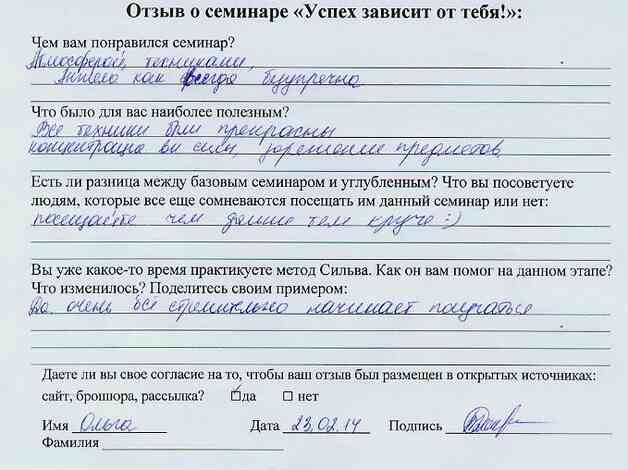 Отзыв о семинаре «Успех зависит от тебя!»:
Чем вам понравился семинар?
Атмосферой, техниками,
как всегда безупречна
Что было для вас наиболее полезным?
Все техники были прекрасны
концентрация предметов
Есть ли разница между базовым семинаром и углубленным? Что вы посоветуете
людям, которые все еще сомневаются посещать им данный семинар или нет:
посещайте чем дальше тем круче :)
Вы уже какое-то время практикуете метод Сильва. Как он вам помог на данном этапе?
Что изменилось? Поделитесь своим примером:
Да, очень всё стремительно начинает получаться
Даете ли вы свое согласие на то, чтобы ваш отзыв был размещен в открытых источниках:
сайт, брошюра, рассылка? да нет
Имя Ольга Дата 23.02.14 Подпись
Фамилия